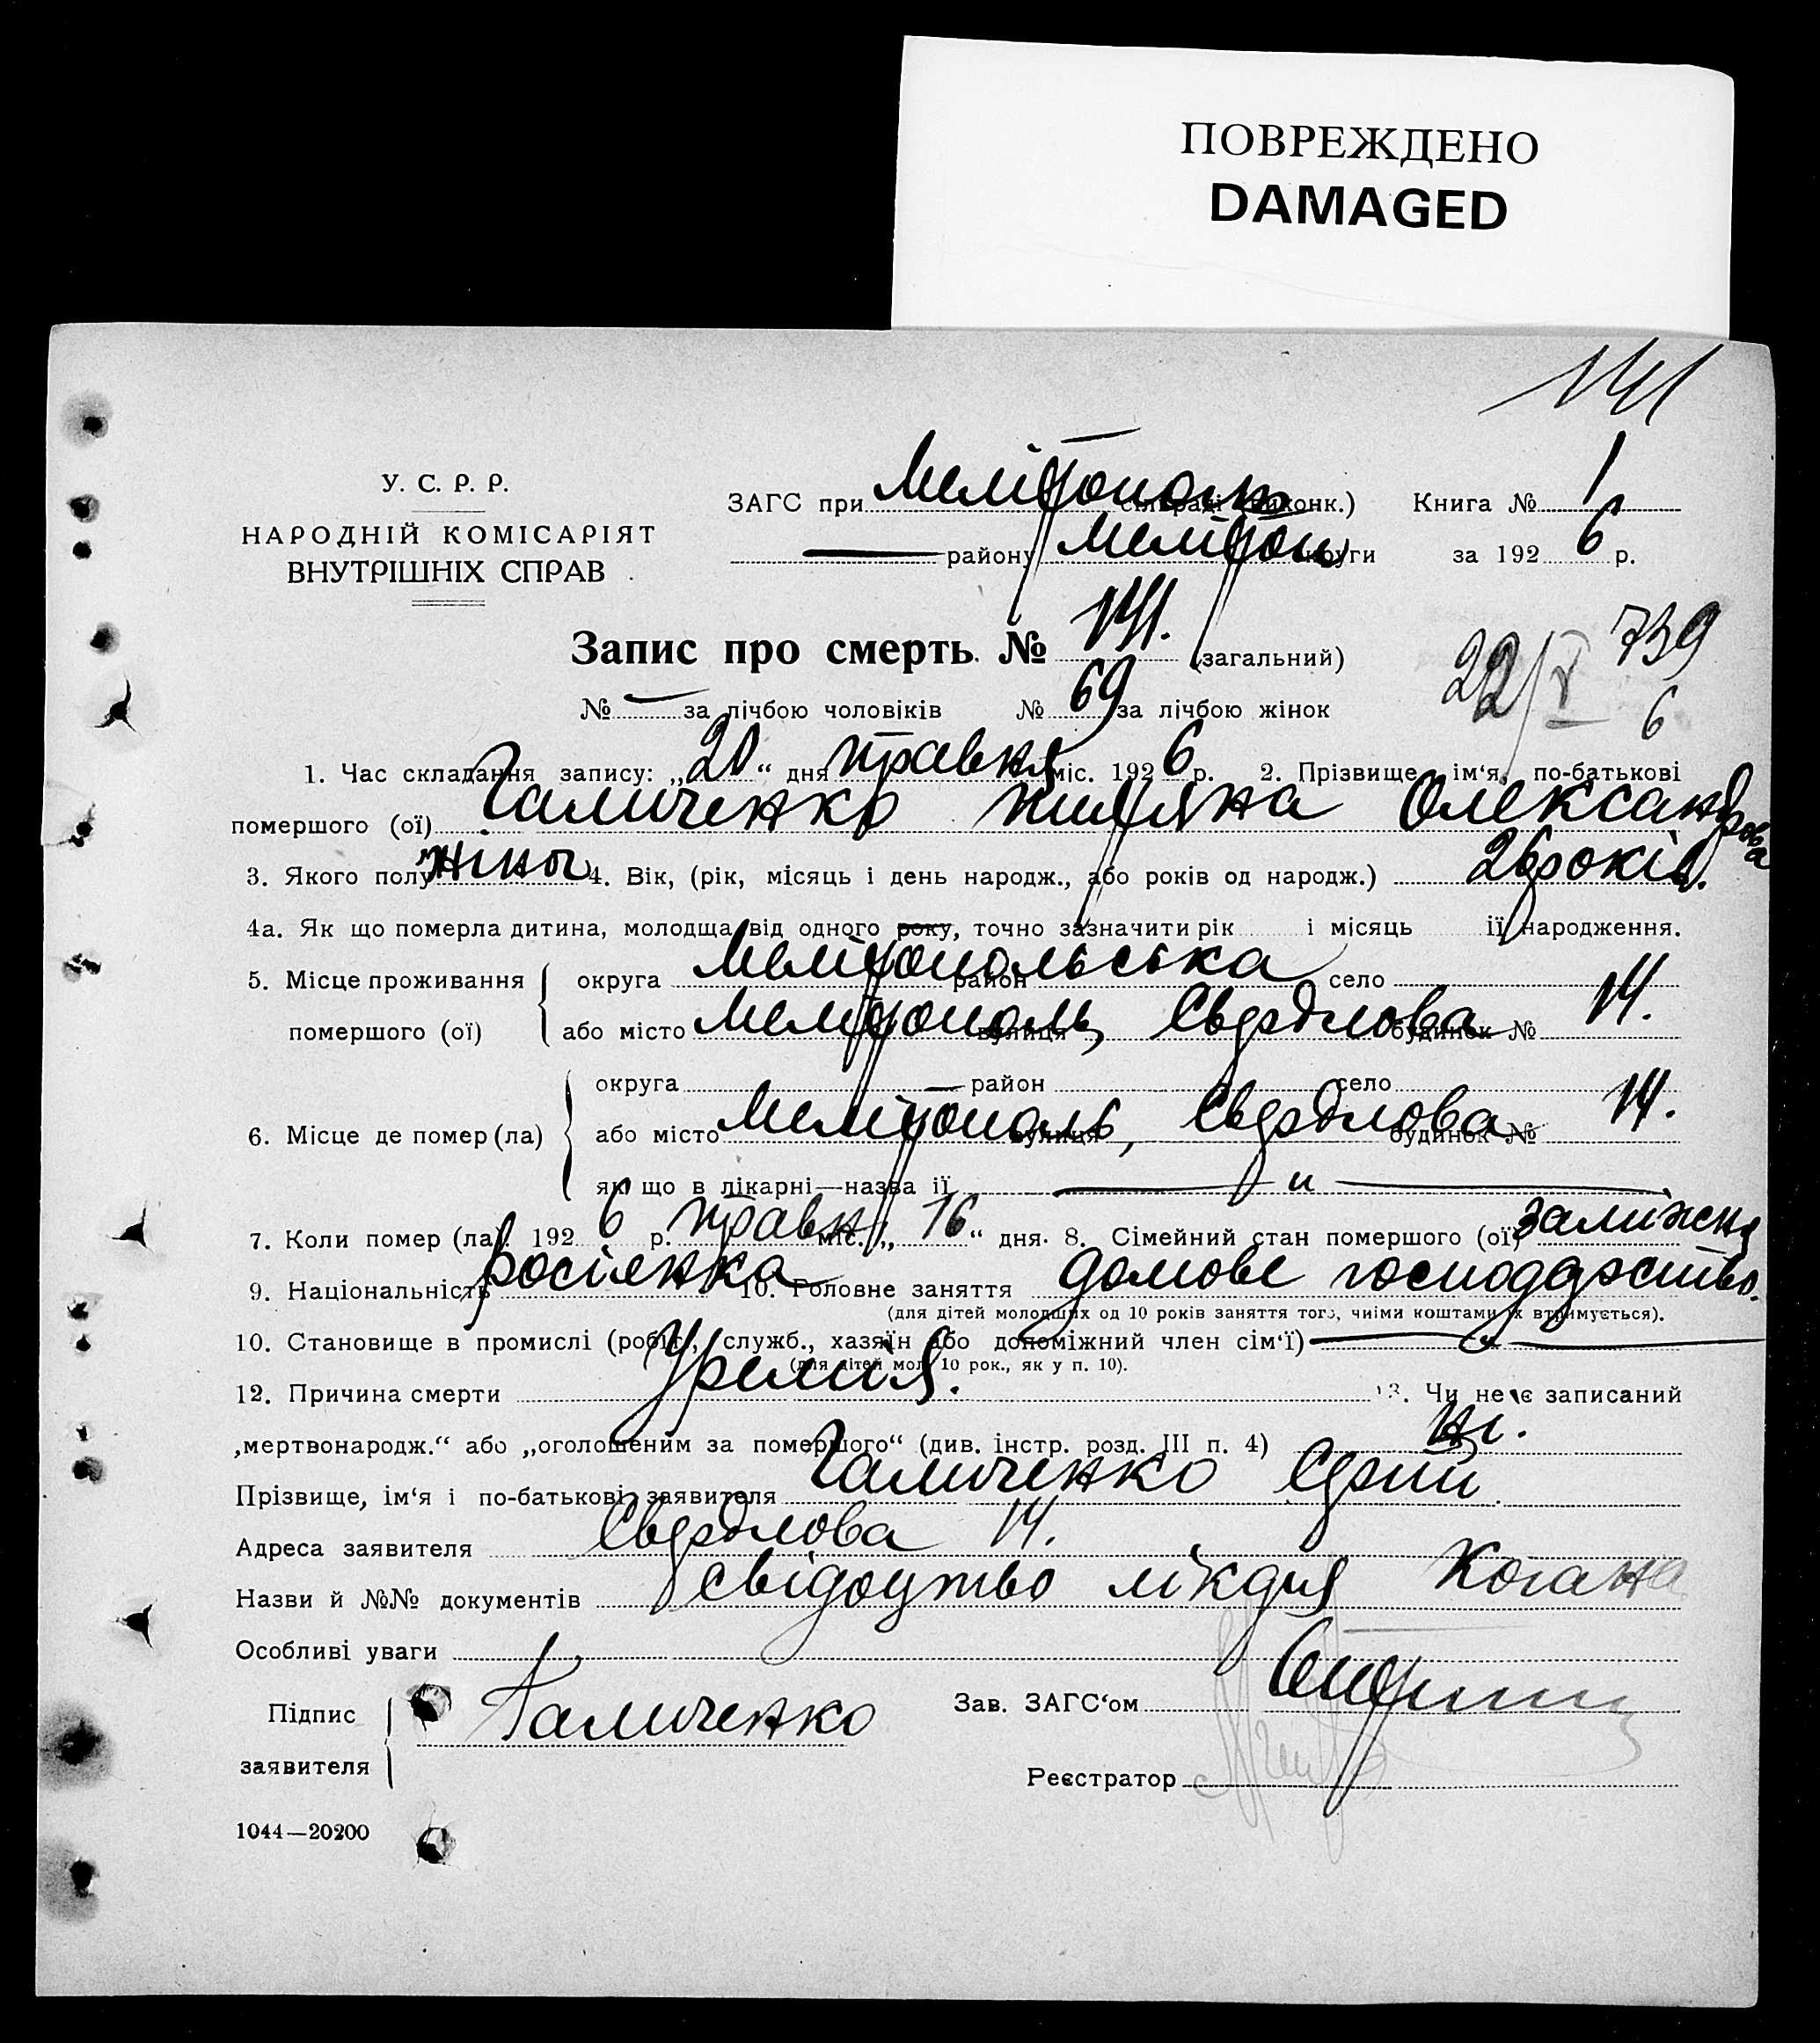 ПОВРЕЖДЕНО
DAMAGED
141
У. С. Р. Р.
НАРОДНІЙ КОМІСАРІЯТ
ВНУТРІШНІХ СПРАВ
ЗАГС при сільраді (виконк.) Книга № 1
району Мелітоп округи за 192 6 р.
Запис про смерть № 141. (загальний)
739
22/V 6
№ — за лічбою чоловіків № 69 за лічбою жінок
1. Час складання запису: „20“ дня травня міс. 192 6 р. 2. Прізвище, ім‘я, по-батькові
помершого (ої) Галиченко Олександрова
3. Якого полу жіноч 4. Вік, (рік, місяць і день народж., або років од народж.) 26 років.
4а. Як що померла дитина, молодща від одного року, точно зазначити рік і місяць її народження.
5. Місце проживання помершого (ої) округа Мелітопольська район село
або місто Мелітополь, вулиця Свердлова будинок № 14.
6. Місце де помер (ла) округа — район село
або місто Мелітополь, вулиця Свердлова будинок № 14.
як що в лікарні—назва її — „ —
7. Коли помер (ла) 192 6 р. травн міс. „16“ дня. 8. Сімейний стан помершого (ої) заміжня
9. Національність росіянка 10. Головне заняття домове господарство.
(для дітей молодших од 10 років заняття того, чиїми коштами їх втримується).
10. Становище в промислі (робіс., служб., хазяїн або допоміжний член сім‘ї) — „ —
(для дітей мол. 10 рок., як у п. 10).
12. Причина смерти Уремія. 13. Чи не є записаний
„мертвонародж.“ або „оголошеним за помершого“ (див. інстр. розд. III п. 4) ні.
Прізвище, ім‘я і по-батькові заявителя Галиченко Сергій
Адреса заявителя Свердлова 14.
Назви й №№ документів свідоцтво лікаря Когана
Особливі уваги
Підпис заявителя Галиченко Зав. ЗАГС‘ом
Реєстратор
1044—20200